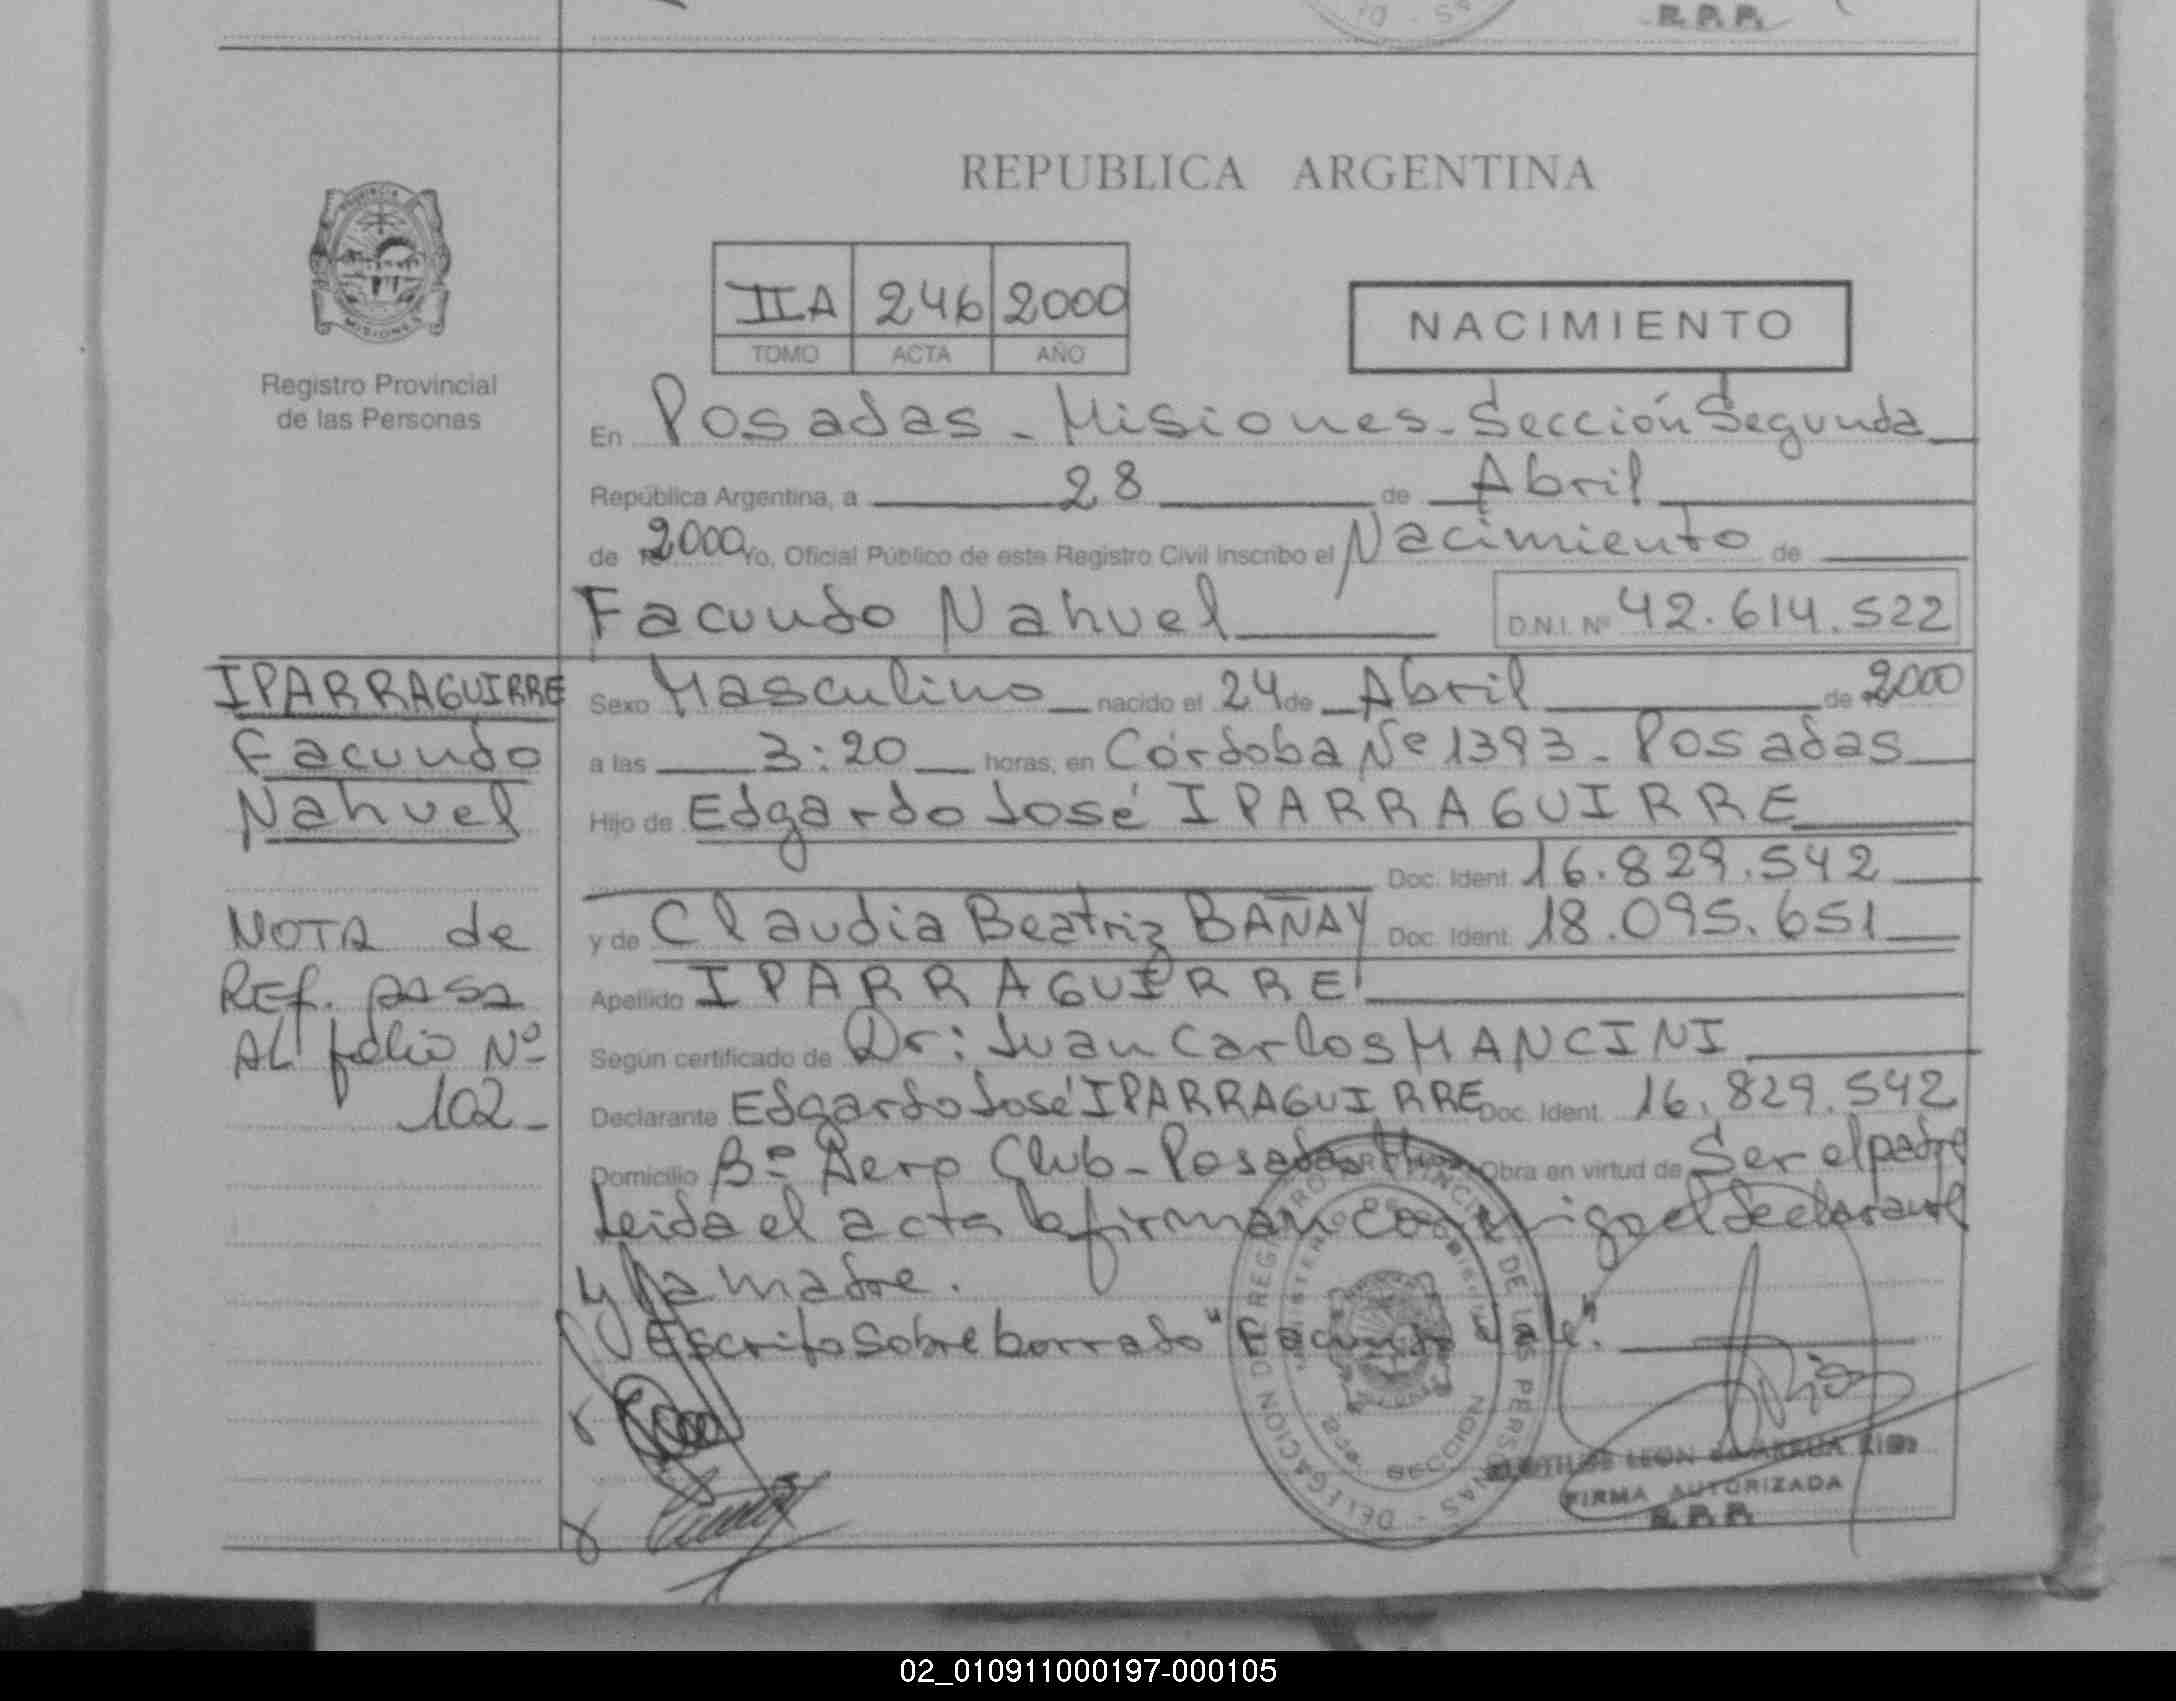 R.P.P.
REPUBLICA ARGENTINA
PROVINCIA
MISIONES
Registro Provincial
de las Personas
IIA 246 2000
TOMO ACTA AÑO
NACIMIENTO
En Posadas - Misiones - Sección Segunda
República Argentina, a 28 de Abril
de 2000 Yo, Oficial Público de este Registro Civil Inscribo el Nacimiento de
Facundo Nahuel D.N.I. Nº 42.614.522
IPARRAGUIRRE
Facundo
Nahuel
Sexo Masculino nacido el 24 de Abril de 2000
a las 3:20 horas, en Córdoba Nº 1393 - Posadas
Hijo de Edgardo José IPARRAGUIRRE
Doc. Ident. 16.829.542
y de Claudia Beatriz BAÑAY Doc. Ident. 18.095.651
Apellido IPARRAGUIRRE
Según certificado de Dr: Juan Carlos MANCINI
Declarante Edgardo José IPARRAGUIRRE Doc. Ident. 16.829.542
Domicilio Bº Aero Club - Posadas Obra en virtud de Ser el padre
Leida el acta la firman conmigo el declarante
y la madre.
Escrito sobre borrado "Facundo Vale".
NOTA de
REf. pasa
AL folio Nº
102 -
DELEGACION DE REGISTRO PROVINCIAL DE LAS PERSONAS
MINISTERIO DE GOBIERNO
SECCION
LEON de ARRUA
FIRMA AUTORIZADA
R.P.P.
02_010911000197-000105